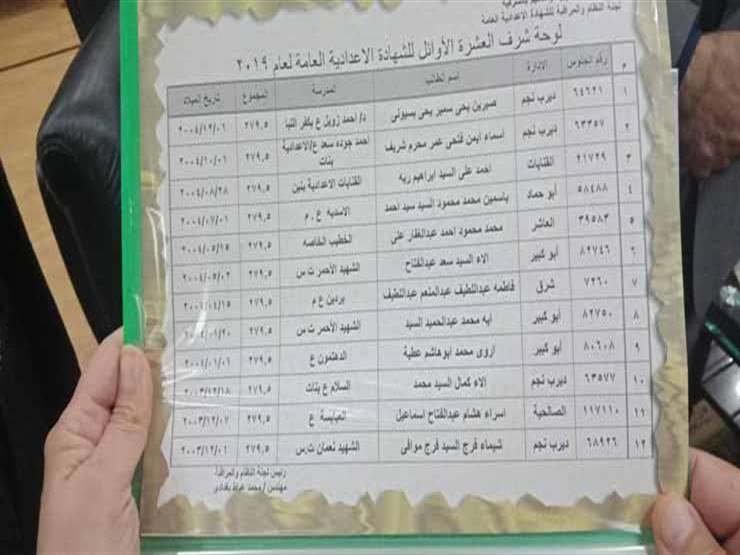 لجنة النظام والمراقبة للشهادة الاعدادية العامة
لوحة شرف العشرة الأوائل للشهادة الاعدادية العامة لعام ٢٠١٩
م رقم الجلوس الادارة اسم الطالب المدرسة المجموع تاريخ الميلاد
١ ٦٤٦٢١ ديرب نجم صبرين يحى سمير يحى بسيونى د/ احمد زويل ع بكفر النبا ٢٧٩,٥ ٢٠٠٤/١٢/٠١
٢ ٦٣٣٥٧ ديرب نجم اسماء ايمن فتحى عمر محرم شريف احمد جوده سعد ع/الاعدادية بنات ٢٧٩,٥ ٢٠٠٤/١٠/٠١
٣ ٢١٧٢٩ القنايات احمد على السيد ابراهيم ربه القنايات الاعدادية بنين ٢٧٩,٥ ٢٠٠٤/٠٨/٢٨
٤ ٥٨٤٨٨ أبو حماد ياسمين محمد محمود السيد سيد احمد الاسديه ع . م ٢٧٩,٥ ٢٠٠٤/٠٧/٠١
٥ ٣٩٥٨٣ العاشر محمد محمود احمد عبدالغفار على الخطيب الخاصه ٢٧٩,٥ ٢٠٠٤/٠٥/١٥
٦ ٨٢٧٤٦ أبو كبير الاء السيد سعد عبدالفتاح الشهيد الأحمر ت س ٢٧٩,٥ ٢٠٠٤/٠٥/٠٢
٧ ٧٢٦٠ شرق فاطمه عبداللطيف عبدالمنعم عبداللطيف بردين ع م ٢٧٩,٥ ٢٠٠٤/٠٤/١٥
٨ ٨٢٧٥٠ أبو كبير ايه محمد عبدالحميد السيد الشهيد الأحمر ت س ٢٧٩,٥ ٢٠٠٤/٠١/٢٠
٩ ٨٠٦٠٨ أبو كبير اروى محمد ابوهاشم عطية الدهتمون ع ٢٧٩,٥ ٢٠٠٤/٠١/٠١
١٠ ٦٣٥٧٧ ديرب نجم الاء كمال السيد محمد السلام ع بنات ٢٧٩,٥ ٢٠٠٣/١٢/١٨
١١ ١١٧١١٠ الصالحية اسراء هشام عبدالفتاح اسماعيل العباسة ع ٢٧٩,٥ ٢٠٠٣/١٢/٠٧
١٢ ٦٨٩٢٦ ديرب نجم شيماء فرج السيد فرج موافى الشهيد نعمان ت.س ٢٧٩,٥ ٢٠٠٣/١٢/٠١
رئيس لجنة النظام والمراقبة
مهندس / محمد عباط بغدادى